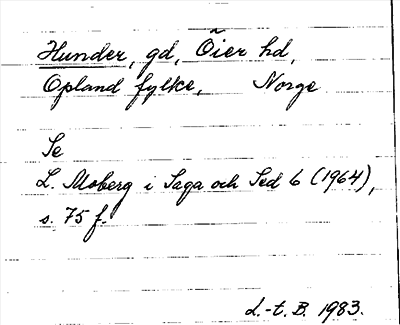 Hunder, gd, Öier hd,
Opland fylke, Norge
Se
L. Moberg i Saga och Sed 6 (1964),
s. 75 f.
L.-t. B. 1983.